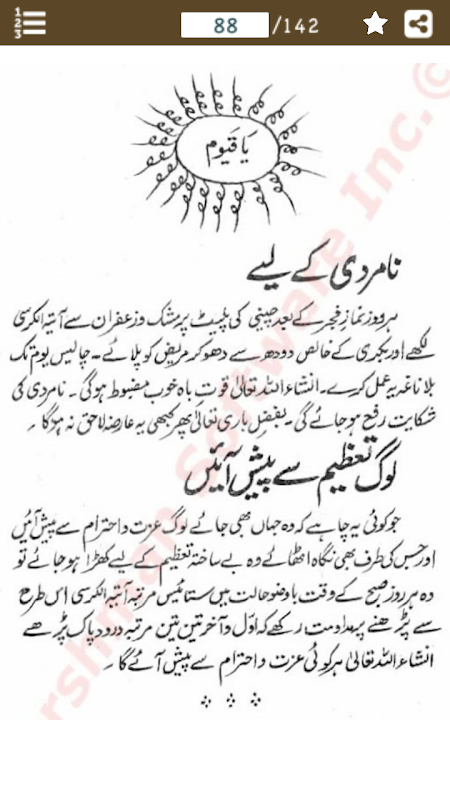 88 /142
یَا قَیُّوم
نامردی کے لیے
ہر روز نماز فجر کے بعد چینی کی پلیٹ پر مشک و زعفران سے آیۃ الکرسی
لکھے اور بکری کے خالص دودھ سے دھو کر مریض کو پلائے۔ چالیس یوم تک
بلا ناغہ یہ عمل کرے۔ انشاء اللہ تعالیٰ قوتِ باہ خوب مضبوط ہوگی۔ نامردی کی
شکایت رفع ہو جائے گی۔ بفضلِ باری تعالیٰ پھر کبھی یہ عارضہ لاحق نہ ہوگا۔
لوگ تعظیم سے پیش آئیں
جو کوئی یہ چاہے کہ وہ جہاں بھی جائے لوگ عزت و احترام سے پیش آئیں
اور جس کی طرف بھی نگاہ اٹھائے وہ بے ساختہ تعظیم کے لیے کھڑا ہو جائے تو
وہ ہر روز صبح کے وقت با وضو حالت میں ستائیس مرتبہ آیۃ الکرسی اس طرح
سے پڑھنے پر مداومت رکھے کہ اوّل و آخر تین تین مرتبہ درود پاک پڑھے
انشاء اللہ تعالیٰ ہر کوئی عزت و احترام سے پیش آئے گا۔
rshman Software Inc. ©